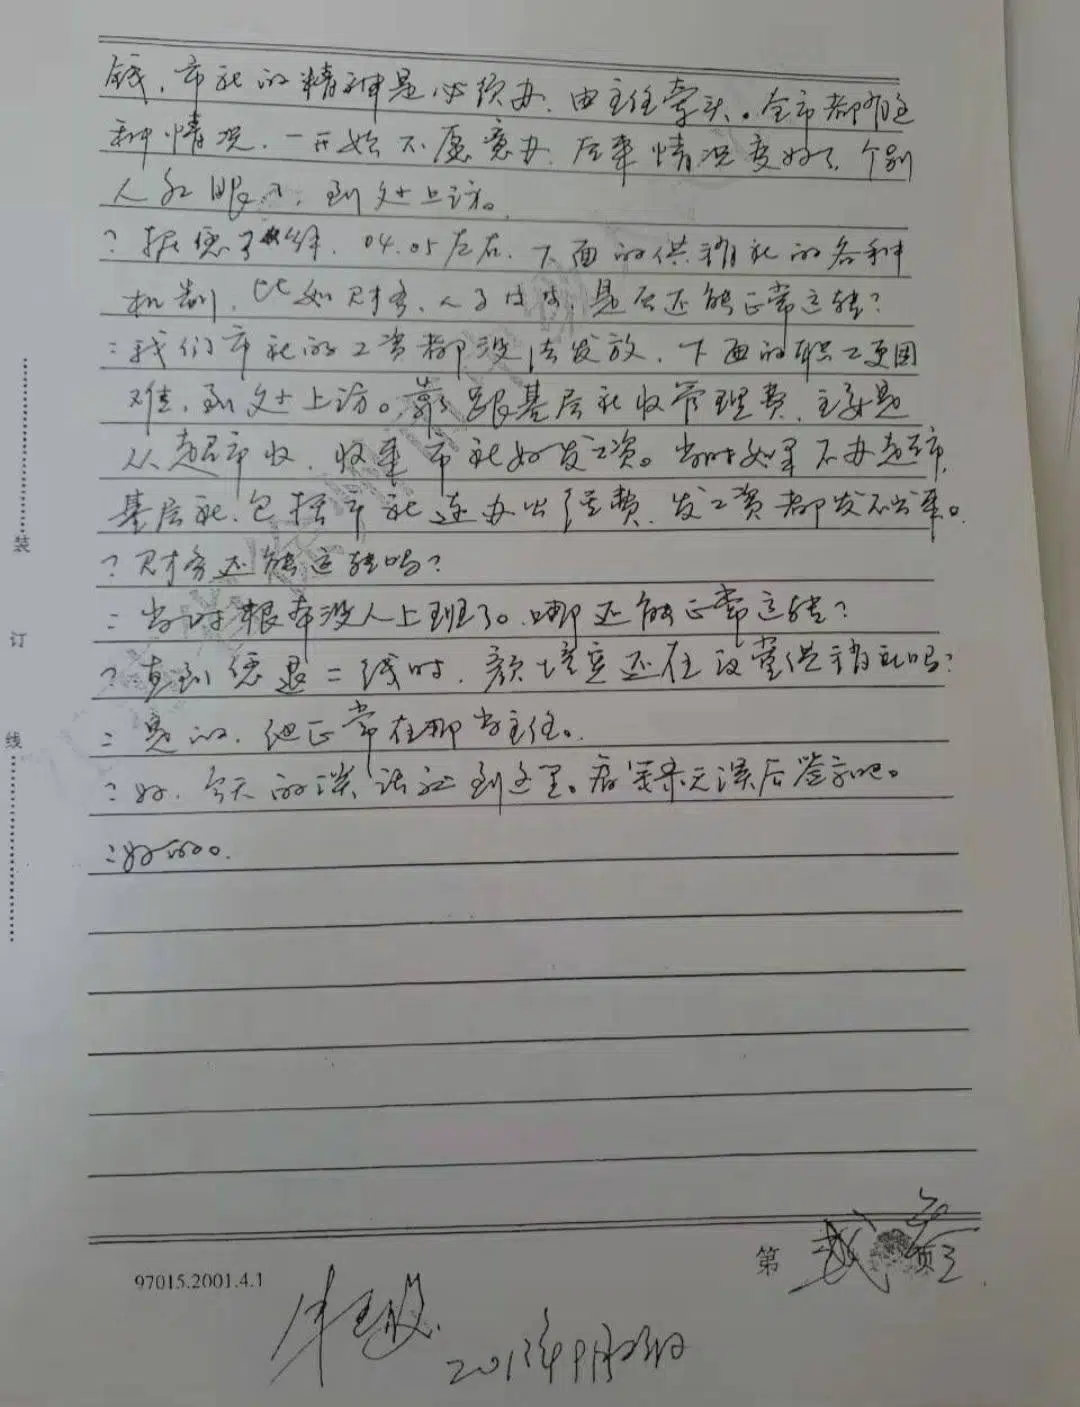 钱，市社的精神是必须办，由主任牵头。全市都有这
种情况，一开始不愿意办，后来情况变好了，个别
人红眼了，到处上访。
？据您了解，04.05左右，下面的供销社的各种
机制，比如财务、人事，是否还能正常运转？
：我们市社的工资都没法发放，下面的职工更困
难，到处上访。靠跟基层社收管理费，主要是
从超市收，收来市社好发工资。当时如果不办超市，
基层社，包括市社连办公经费，发工资都发不出来。
？财务还能运转吗？
：当时根本没人上班了。哪还能正常运转？
？直到您退二线时，颜培宝还在汉堂供销社吗？
：是的，他正常在那当主任。
：好，今天的谈话记到这里。看笔录无误后签字吧。
：好的。
装
订
线
97015.2001.4.1
第 页
2013年9月23日